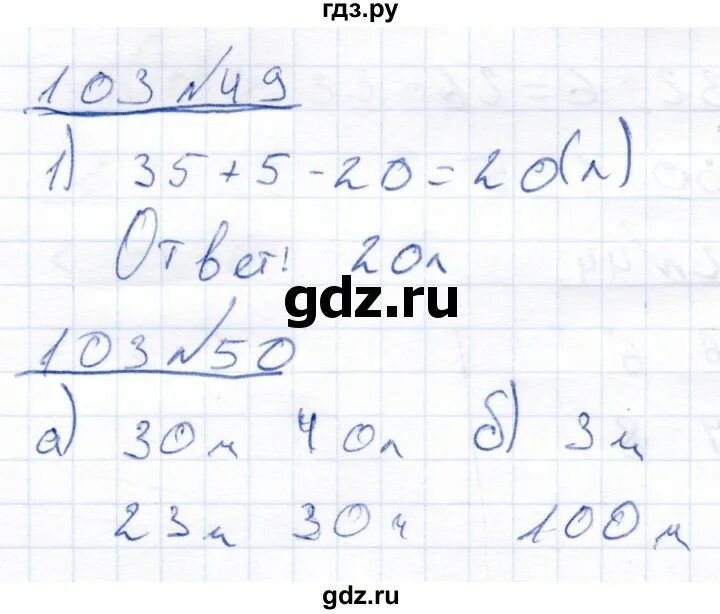 гдз.ру
103 №49
1) 35+5-20=20(л)
Ответ: 20л
gdz.ru
103 №50
а) 30м 40л б) 3м
23м 30ч 100м
gdz.ru